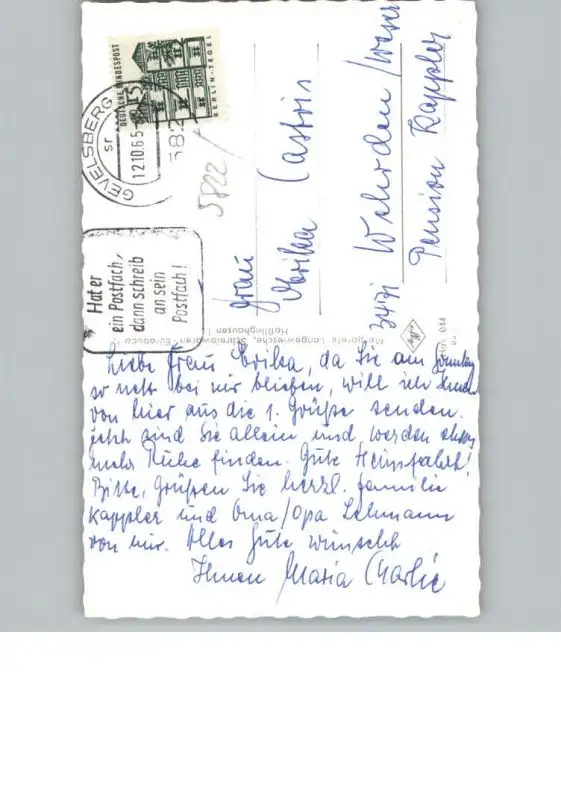 DEUTSCHE BUNDESPOST
15
BERLIN-TEGEL
GEVELSBERG
12.10.65
5822
Hat er
ein Postfach,
dann schreib
an sein
Postfach!
Frau
Erika Castris
3471 Wehrden/Weser
Pension Kappler
Margarete Langewiesche, Schreibwaren
Haßlinghausen
Agfa
Liebe Frau Erika, da Sie am Sonntag
so nett bei mir blieben, will ich Ihnen
von hier aus die 1. Grüße senden.
Jetzt sind Sie allein und werden etwas
mehr Ruhe finden. Gute Heimfahrt!
Bitte, Grüßen Sie herzl. Familie
Kappler und Oma/Opa Lehmann
von mir. Alles Gute wünscht
Ihnen Maria